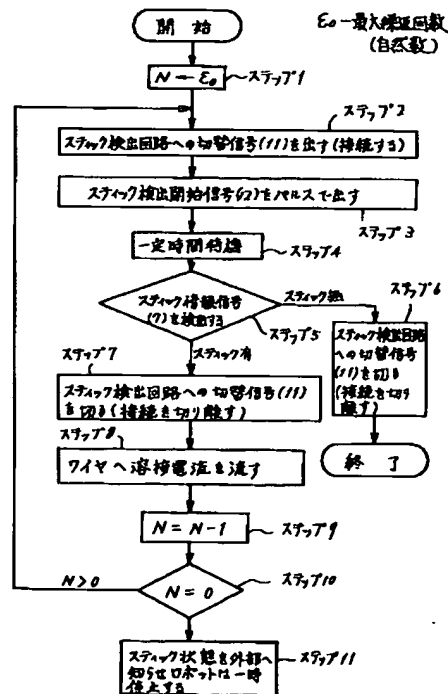 開始
ε₀ー最大繰返回数
(自然数)
N ← ε₀
ステップ1
ステップ2
スティック検出回路への切替信号(11)を出す(接続する)
スティック検出開始信号(12)をパルスで出す
ステップ3
一定時間待機
ステップ4
スティック情報信号
(7)を検出する
スティック無
ステップ5
ステップ6
スティック検出回路
への切替信号
(11)を切る
(接続を切り
離す)
終了
スティック有
ステップ7
スティック検出回路への切替信号(11)
を切る(接続を切り離す)
ステップ8
ワイヤへ溶接電流を流す
N = N-1
ステップ9
N>0
N = 0
ステップ10
スティック状態を外部へ
知らせロボットは一時
停止する
ステップ11